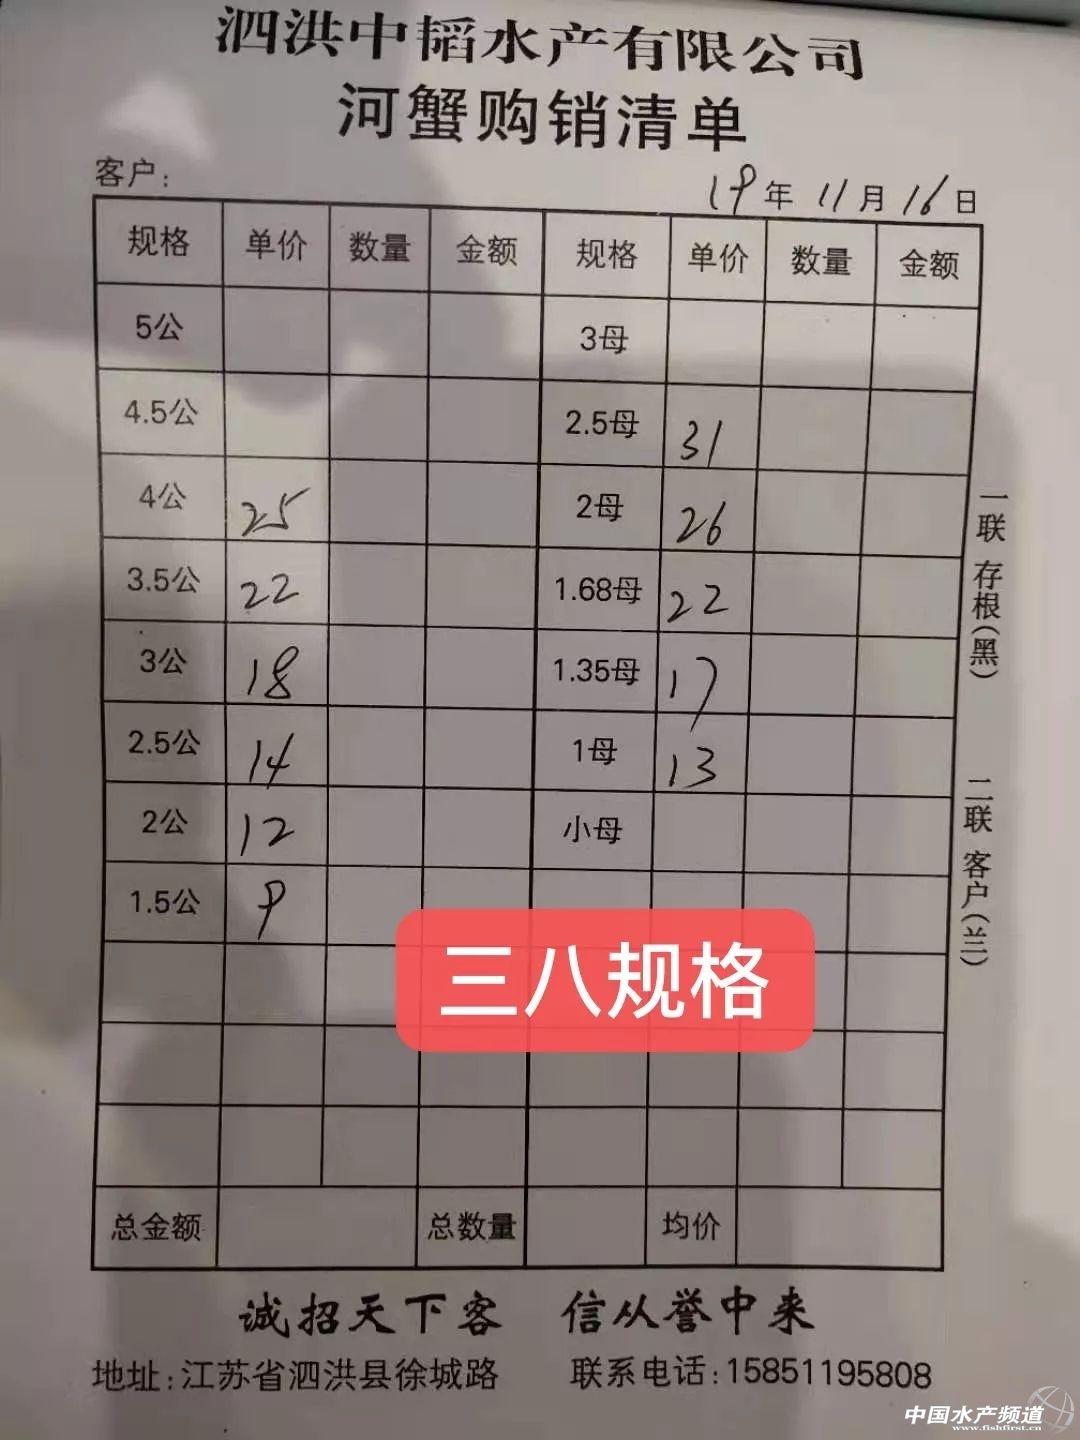 泗洪中韬水产有限公司
河蟹购销清单
客户: 19年11月16日
规格 单价 数量 金额 规格 单价 数量 金额
5公 3母
4.5公 2.5母 31
4公 25 2母 26
3.5公 22 1.68母 22
3公 18 1.35母 17
2.5公 14 1母 13
2公 12 小母
1.5公 9
三八规格
总金额 总数量 均价
一联 存根(黑)
二联 客户(兰)
诚招天下客 信从誉中来
地址:江苏省泗洪县徐城路 联系电话:15851195808
中国水产频道
www.fishfirst.cn